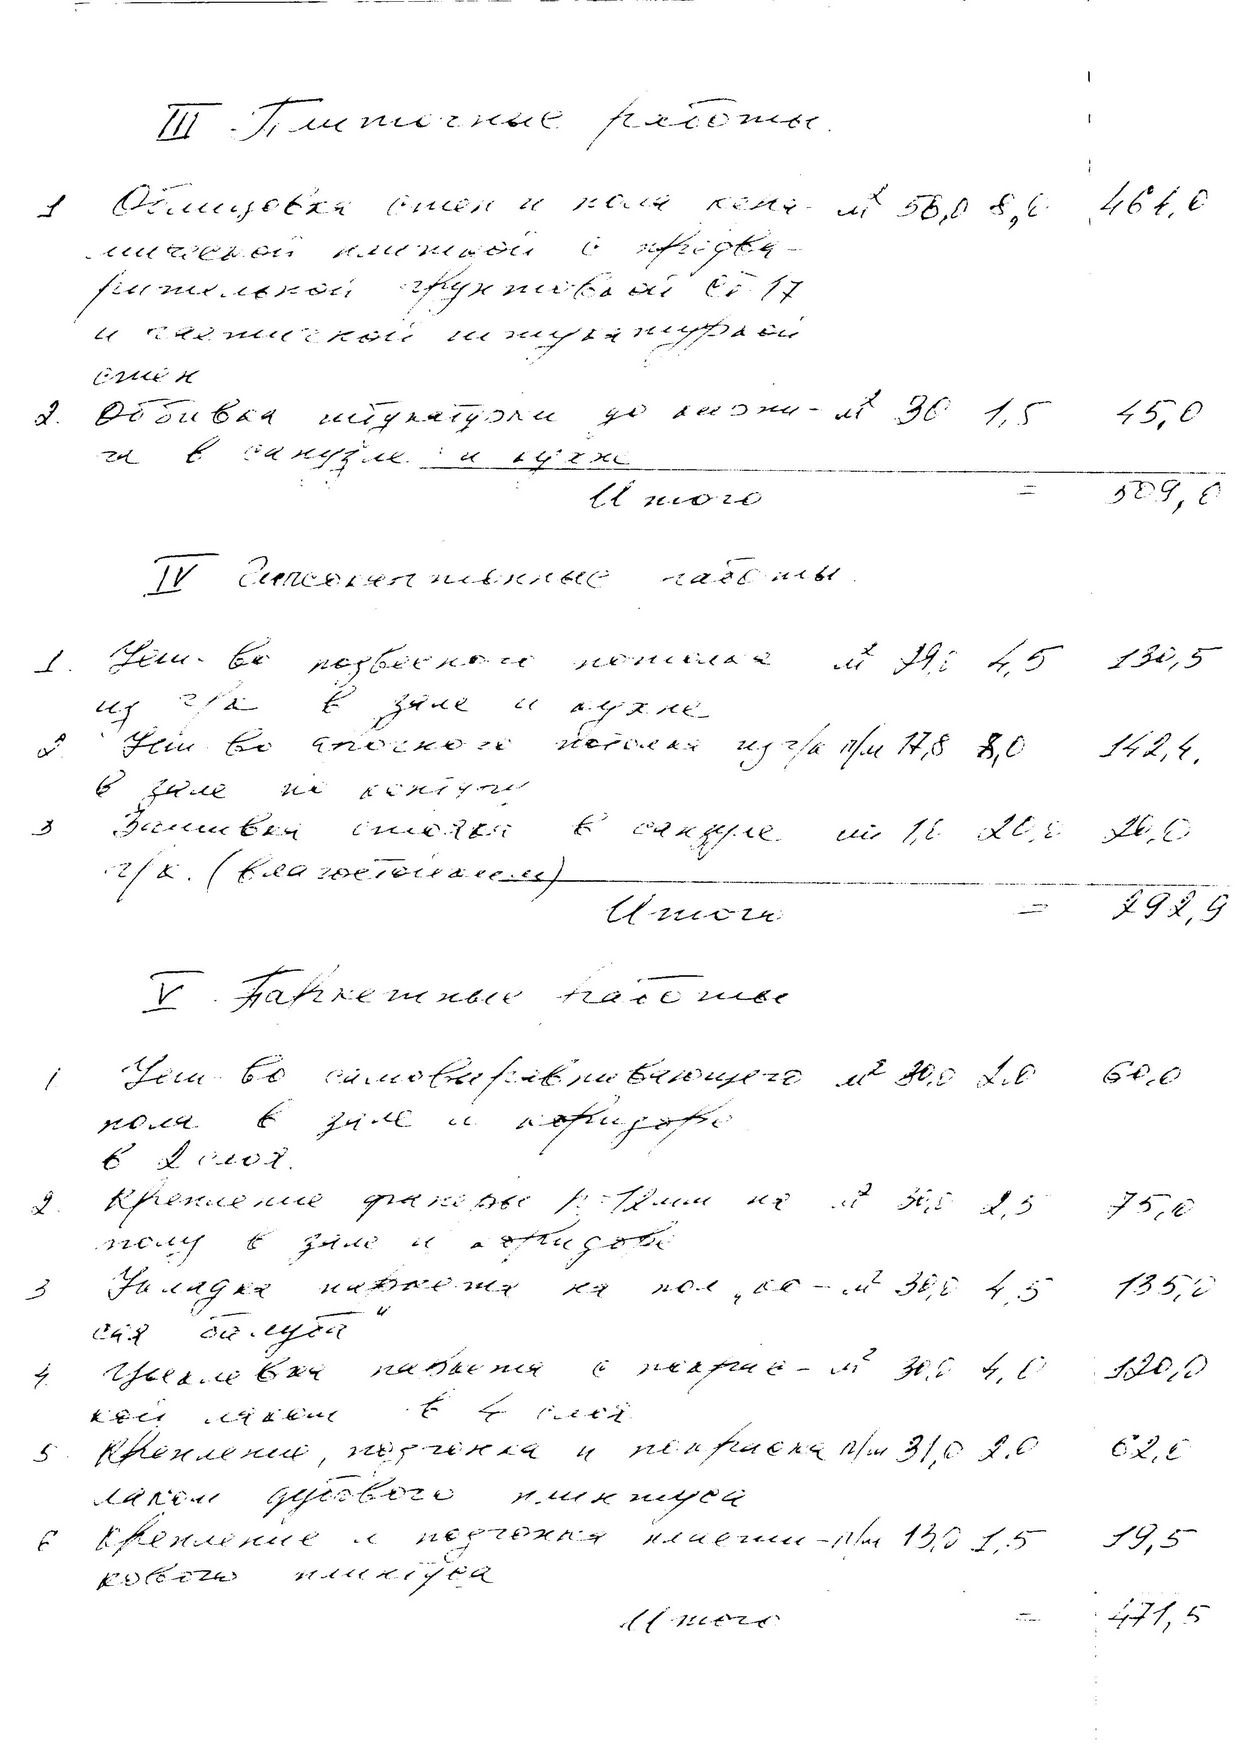 III Плиточные работы.
1 Облицовка стен и пола кера- м² 58,0 8,0 464,0
мической плиткой с предва-
рительной грунтовкой Ст 17
и частичной штукатуркой
стен
2. Оббивка штукатурки до кирпи- м² 30 1,5 45,0
ча в санузле и кухне
Итого = 509,0
IV Гипсокартонные работы.
1. Уст-во подвесного потолка м² 29,0 4,5 130,5
из г/к в зале и кухне
2 Уст-во плоского потолка из г/к п/м 17,8 8,0 142,4.
в зале по контуру
3 Зашивка стояка в санузле шт 1,0 20,0 20,0
г/к. (влагостойким)
Итого = 292,9
V Паркетные работы
1 Уст-во самовыравнивающего м² 30,0 2.0 60.0
пола в зале и коридоре
в 2 слоя.
2. Крепление фанеры h=12мм на м² 30,0 2,5 75,0
полу в зале и коридоре
3 Укладка паркета на пол „ко- м² 30,0 4,5 135,0
сая палуба“
4. Циклевка паркета с покрас- м² 30,0 4,0 120,0
кой лаком в 4 слоя
5 Крепление, подгонка и покраска п/м 31,0 2.0 62,0
лаком дубового плинтуса
6 Крепление и подгонка пласти- п/м 13,0 1,5 19,5
кового плинтуса
Итого = 471,5